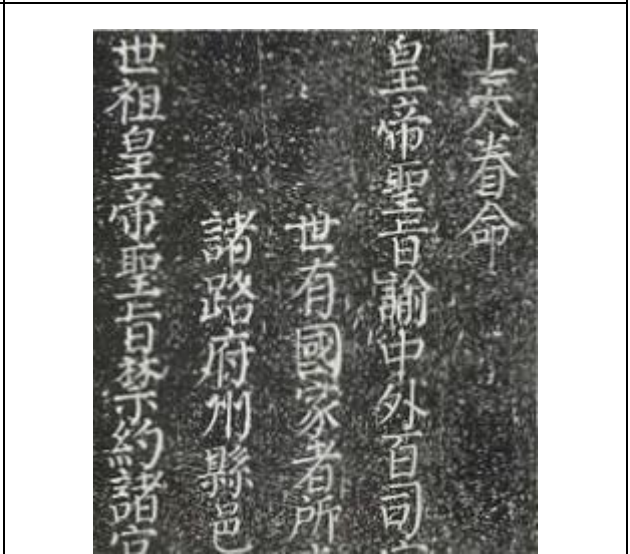 上天眷命
皇帝聖旨諭中外百司官
世有國家者所
諸路府州縣邑
世祖皇帝聖旨禁約諸官